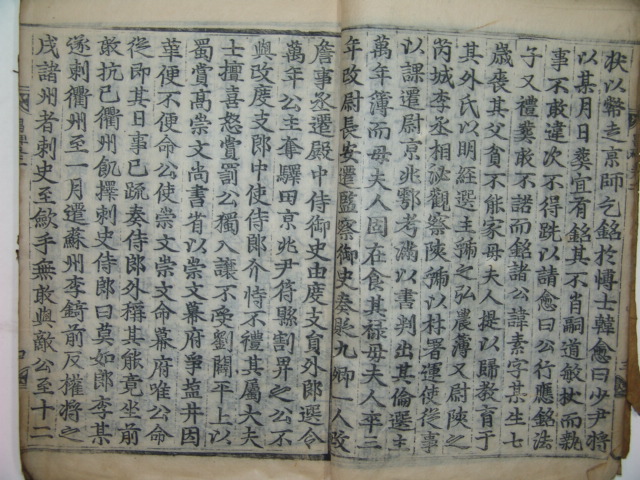 状以幣走京師乞銘於愽士韓愈曰少尹將
以某月日葬宜有銘其不肖嗣道敏杖而執
事不敢違次不得跣以請愈曰公行應銘法
子又禮葬敢不諾而銘諸公諱素字某生七
歲喪其父貧不能家母夫人提以歸教育于
其外氏以明經選主虢之弘農簿又尉陝之
芮城李丞相泌觀察陝虢以材署運使從事
以課遷尉京兆鄠考滿以書判出其倫選主
萬年簿而母夫人固在食其祿母夫人卒三
年改尉長安遷監察御史奏貶九卿一人改
詹事丞遷殿中侍御史由度支員外郎選令
萬年公主奪驛田京兆尹符縣割畀之公不
與改度支郎中使侍郎介恃不禮其屬大夫
士擅喜怒賞罰公獨入讓不受劉闢平上以
蜀賞高崇文尚書省以崇文幕府爭塩井因
革便不便命公使崇文崇文命幕府唯公命
從即其日事已䟽奏侍郎外稱其能竟坐前
敢抗已衢州飢擇刺史侍郎曰莫如郎李某
遂刺衢州至一月遷蘇州李錡前反權將之
戍諸州者刺史至斂手無敢與敵公至十二